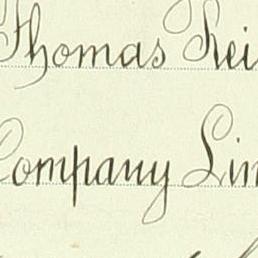 Thomas Rei
Company Lim